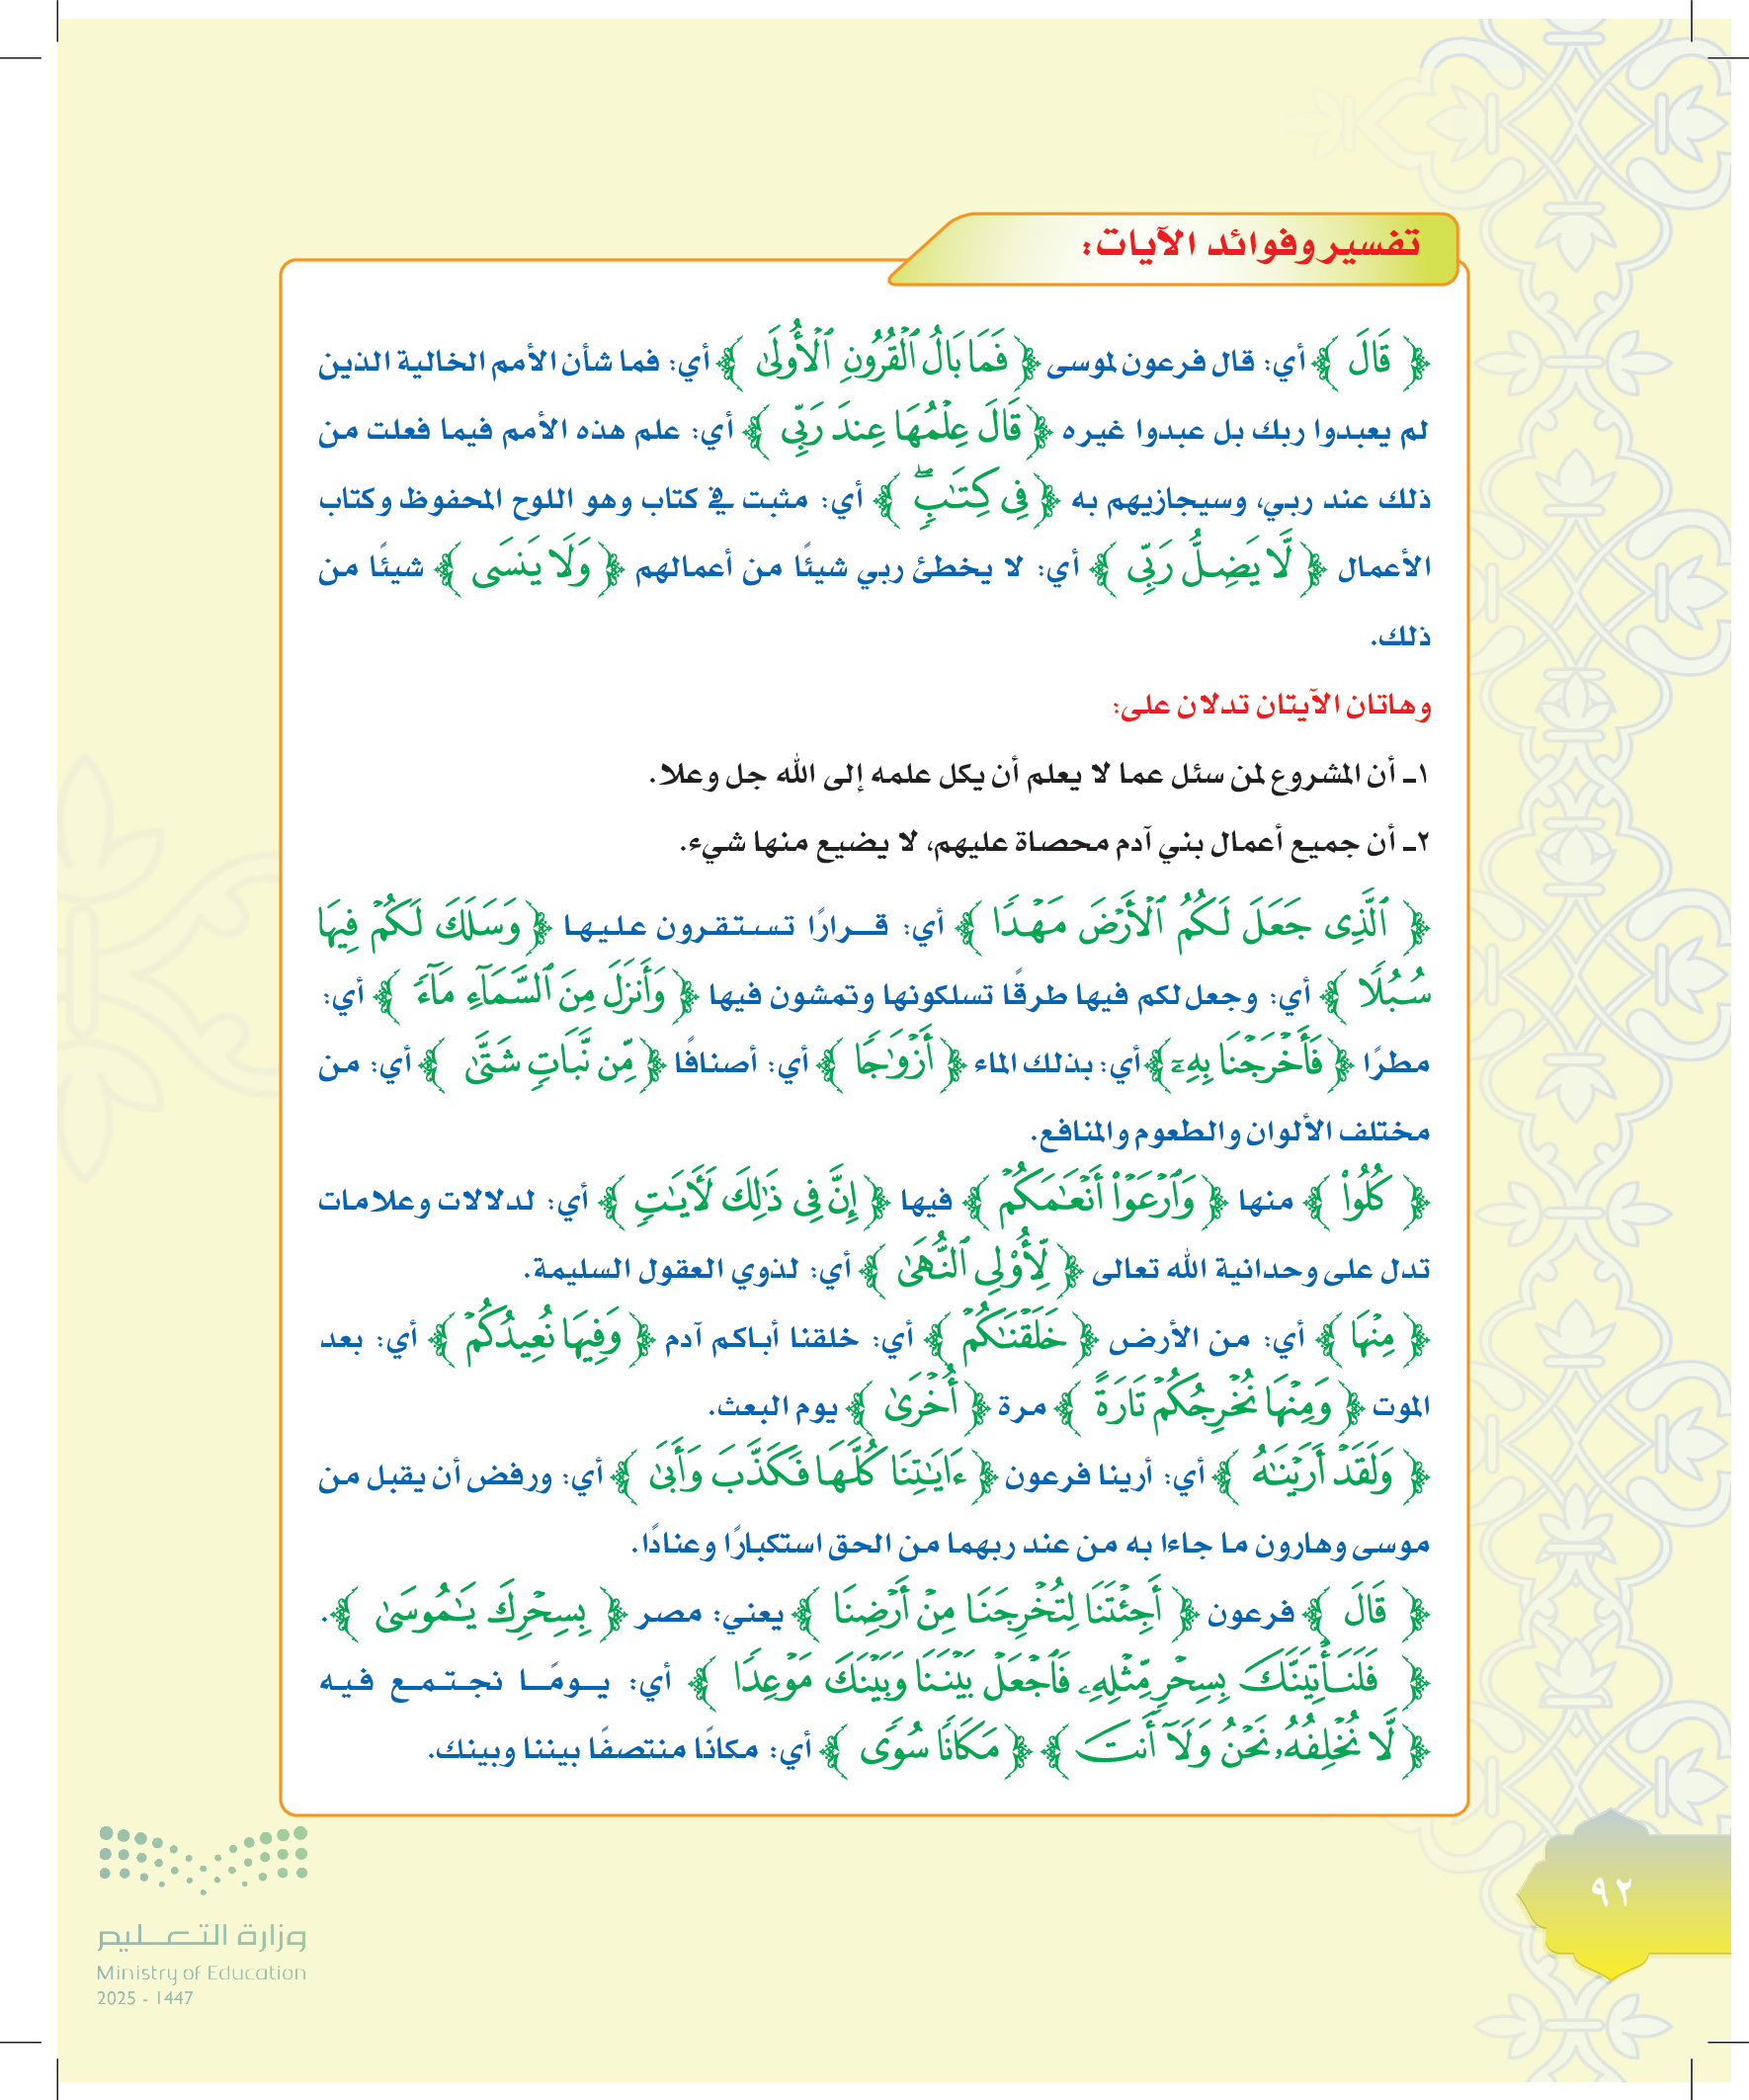 تفسير وفوائد الآيات:
﴿ قَالَ ﴾ أي: قال فرعون لموسى ﴿ فَمَا بَالُ ٱلْقُرُونِ ٱلْأُولَىٰ ﴾ أي: فما شأن الأمم الخالية الذين
لم يعبدوا ربك بل عبدوا غيره ﴿ قَالَ عِلْمُهَا عِندَ رَبِّى ﴾ أي: علم هذه الأمم فيما فعلت من
ذلك عند ربي، وسيجازيهم به ﴿ فِى كِتَٰبٍۖ ﴾ أي: مثبت في كتاب وهو اللوح المحفوظ وكتاب
الأعمال ﴿ لَّا يَضِلُّ رَبِّى ﴾ أي: لا يخطئ ربي شيئًا من أعمالهم ﴿ وَلَا يَنسَى ﴾ شيئًا من
ذلك.
وهاتان الآيتان تدلان على:
١ـ أن المشروع لمن سئل عما لا يعلم أن يكل علمه إلى الله جل وعلا.
٢ـ أن جميع أعمال بني آدم محصاة عليهم، لا يضيع منها شيء.
﴿ ٱلَّذِى جَعَلَ لَكُمُ ٱلْأَرْضَ مَهْدًا ﴾ أي: قـــرارًا تستقرون عليها ﴿ وَسَلَكَ لَكُمْ فِيهَا
سُبُلًا ﴾ أي: وجعل لكم فيها طرقًا تسلكونها وتمشون فيها ﴿ وَأَنزَلَ مِنَ ٱلسَّمَآءِ مَآءً ﴾ أي:
مطرًا ﴿ فَأَخْرَجْنَا بِهِۦٓ ﴾ أي: بذلك الماء ﴿ أَزْوَٰجًا ﴾ أي: أصنافًا ﴿ مِّن نَّبَاتٍ شَتَّىٰ ﴾ أي: من
مختلف الألوان والطعوم والمنافع.
﴿ كُلُوا۟ ﴾ منها ﴿ وَٱرْعَوْا۟ أَنْعَٰمَكُمْ ﴾ فيها ﴿ إِنَّ فِى ذَٰلِكَ لَءَايَٰتٍ ﴾ أي: لدلالات وعلامات
تدل على وحدانية الله تعالى ﴿ لِّأُو۟لِى ٱلنُّهَىٰ ﴾ أي: لذوي العقول السليمة.
﴿ مِنْهَا ﴾ أي: من الأرض ﴿ خَلَقْنَٰكُمْ ﴾ أي: خلقنا أباكم آدم ﴿ وَفِيهَا نُعِيدُكُمْ ﴾ أي: بعد
الموت ﴿ وَمِنْهَا نُخْرِجُكُمْ تَارَةً ﴾ مرة ﴿ أُخْرَىٰ ﴾ يوم البعث.
﴿ وَلَقَدْ أَرَيْنَٰهُ ﴾ أي: أرينا فرعون ﴿ ءَايَٰتِنَا كُلَّهَا فَكَذَّبَ وَأَبَىٰ ﴾ أي: ورفض أن يقبل من
موسى وهارون ما جاءا به من عند ربهما من الحق استكبارًا وعنادًا.
﴿ قَالَ ﴾ فرعون ﴿ أَجِئْتَنَا لِتُخْرِجَنَا مِنْ أَرْضِنَا ﴾ يعني: مصر ﴿ بِسِحْرِكَ يَٰمُوسَىٰ ﴾.
﴿ فَلَنَأْتِيَنَّكَ بِسِحْرٍ مِّثْلِهِۦ فَٱجْعَلْ بَيْنَنَا وَبَيْنَكَ مَوْعِدًا ﴾ أي: يـــومًـــا نجتمع فيه
﴿ لَّا نُخْلِفُهُۥ نَحْنُ وَلَآ أَنتَ ﴾ ﴿ مَكَانًا سُوًى ﴾ أي: مكانًا منتصفًا بيننا وبينك.
٩٢
وزارة التعليم
Ministry of Education
2025 - 1447